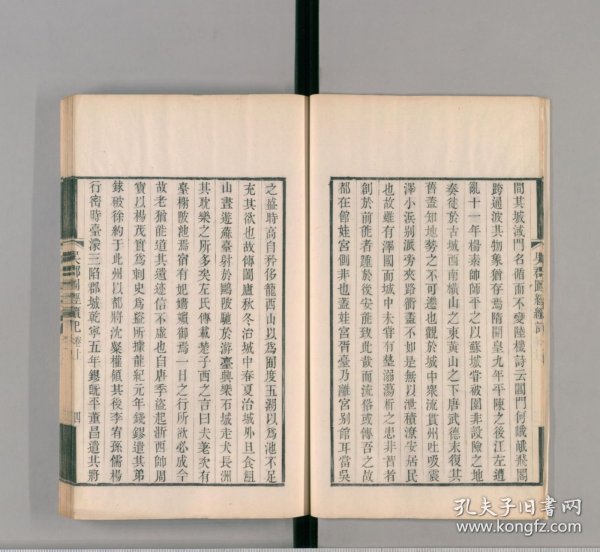 間其城域門名循而不變陸機詩云閶門何峨峨飛閣
跨通波其物象猶存焉隋開皇九年平陳之後江左遭
亂十一年楊素帥師平之以蘇城嘗被圍非設險之地
奏徙於古城西南橫山之東黃山之下唐武德末復其
舊蓋知地勢之不可遷也觀於城中衆流貫州吐吸震
澤小浜別派旁夾路衢蓋不如是無以泄積潦安居民
也故雖有澤國而城中未嘗有墊溺蕩析之患非智者
創於前能者踵於後安能致此哉而流俗或傳吾之故
都在館娃宮側非也蓋娃宮胥臺乃離宮別館耳當吳
之盛時高自矜侈籠西山以爲囿度五湖以爲池不足
充其欲也故傳闔廬秋冬治城中春夏治城外旦食䱉
山晝遊蘇臺射於鷗陂馳於游臺興樂石城走犬長洲
其耽樂之所多矣左氏傳載楚子西之言曰夫差次有
臺榭陂池焉宿有妃嬙嬪御焉一日之行所欲必成今
故老猶能道其遺迹信不虛也自唐季盜起浙西帥周
寶以楊茂實爲刺史爲盜所據龍紀元年錢鏐遣其弟
銶破徐約于此州以都將沈粲權領其後李宥孫儒楊
行密時臺濛三陷郡城乾寧五年鏐既平董昌遣其將
吳郡圖經續記 卷上
四
孔夫子旧书网
www.kongfz.com